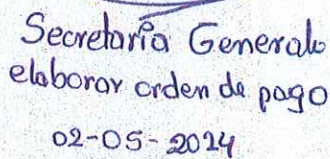 Secretaría General
elaborar orden de pago
02-05-2024